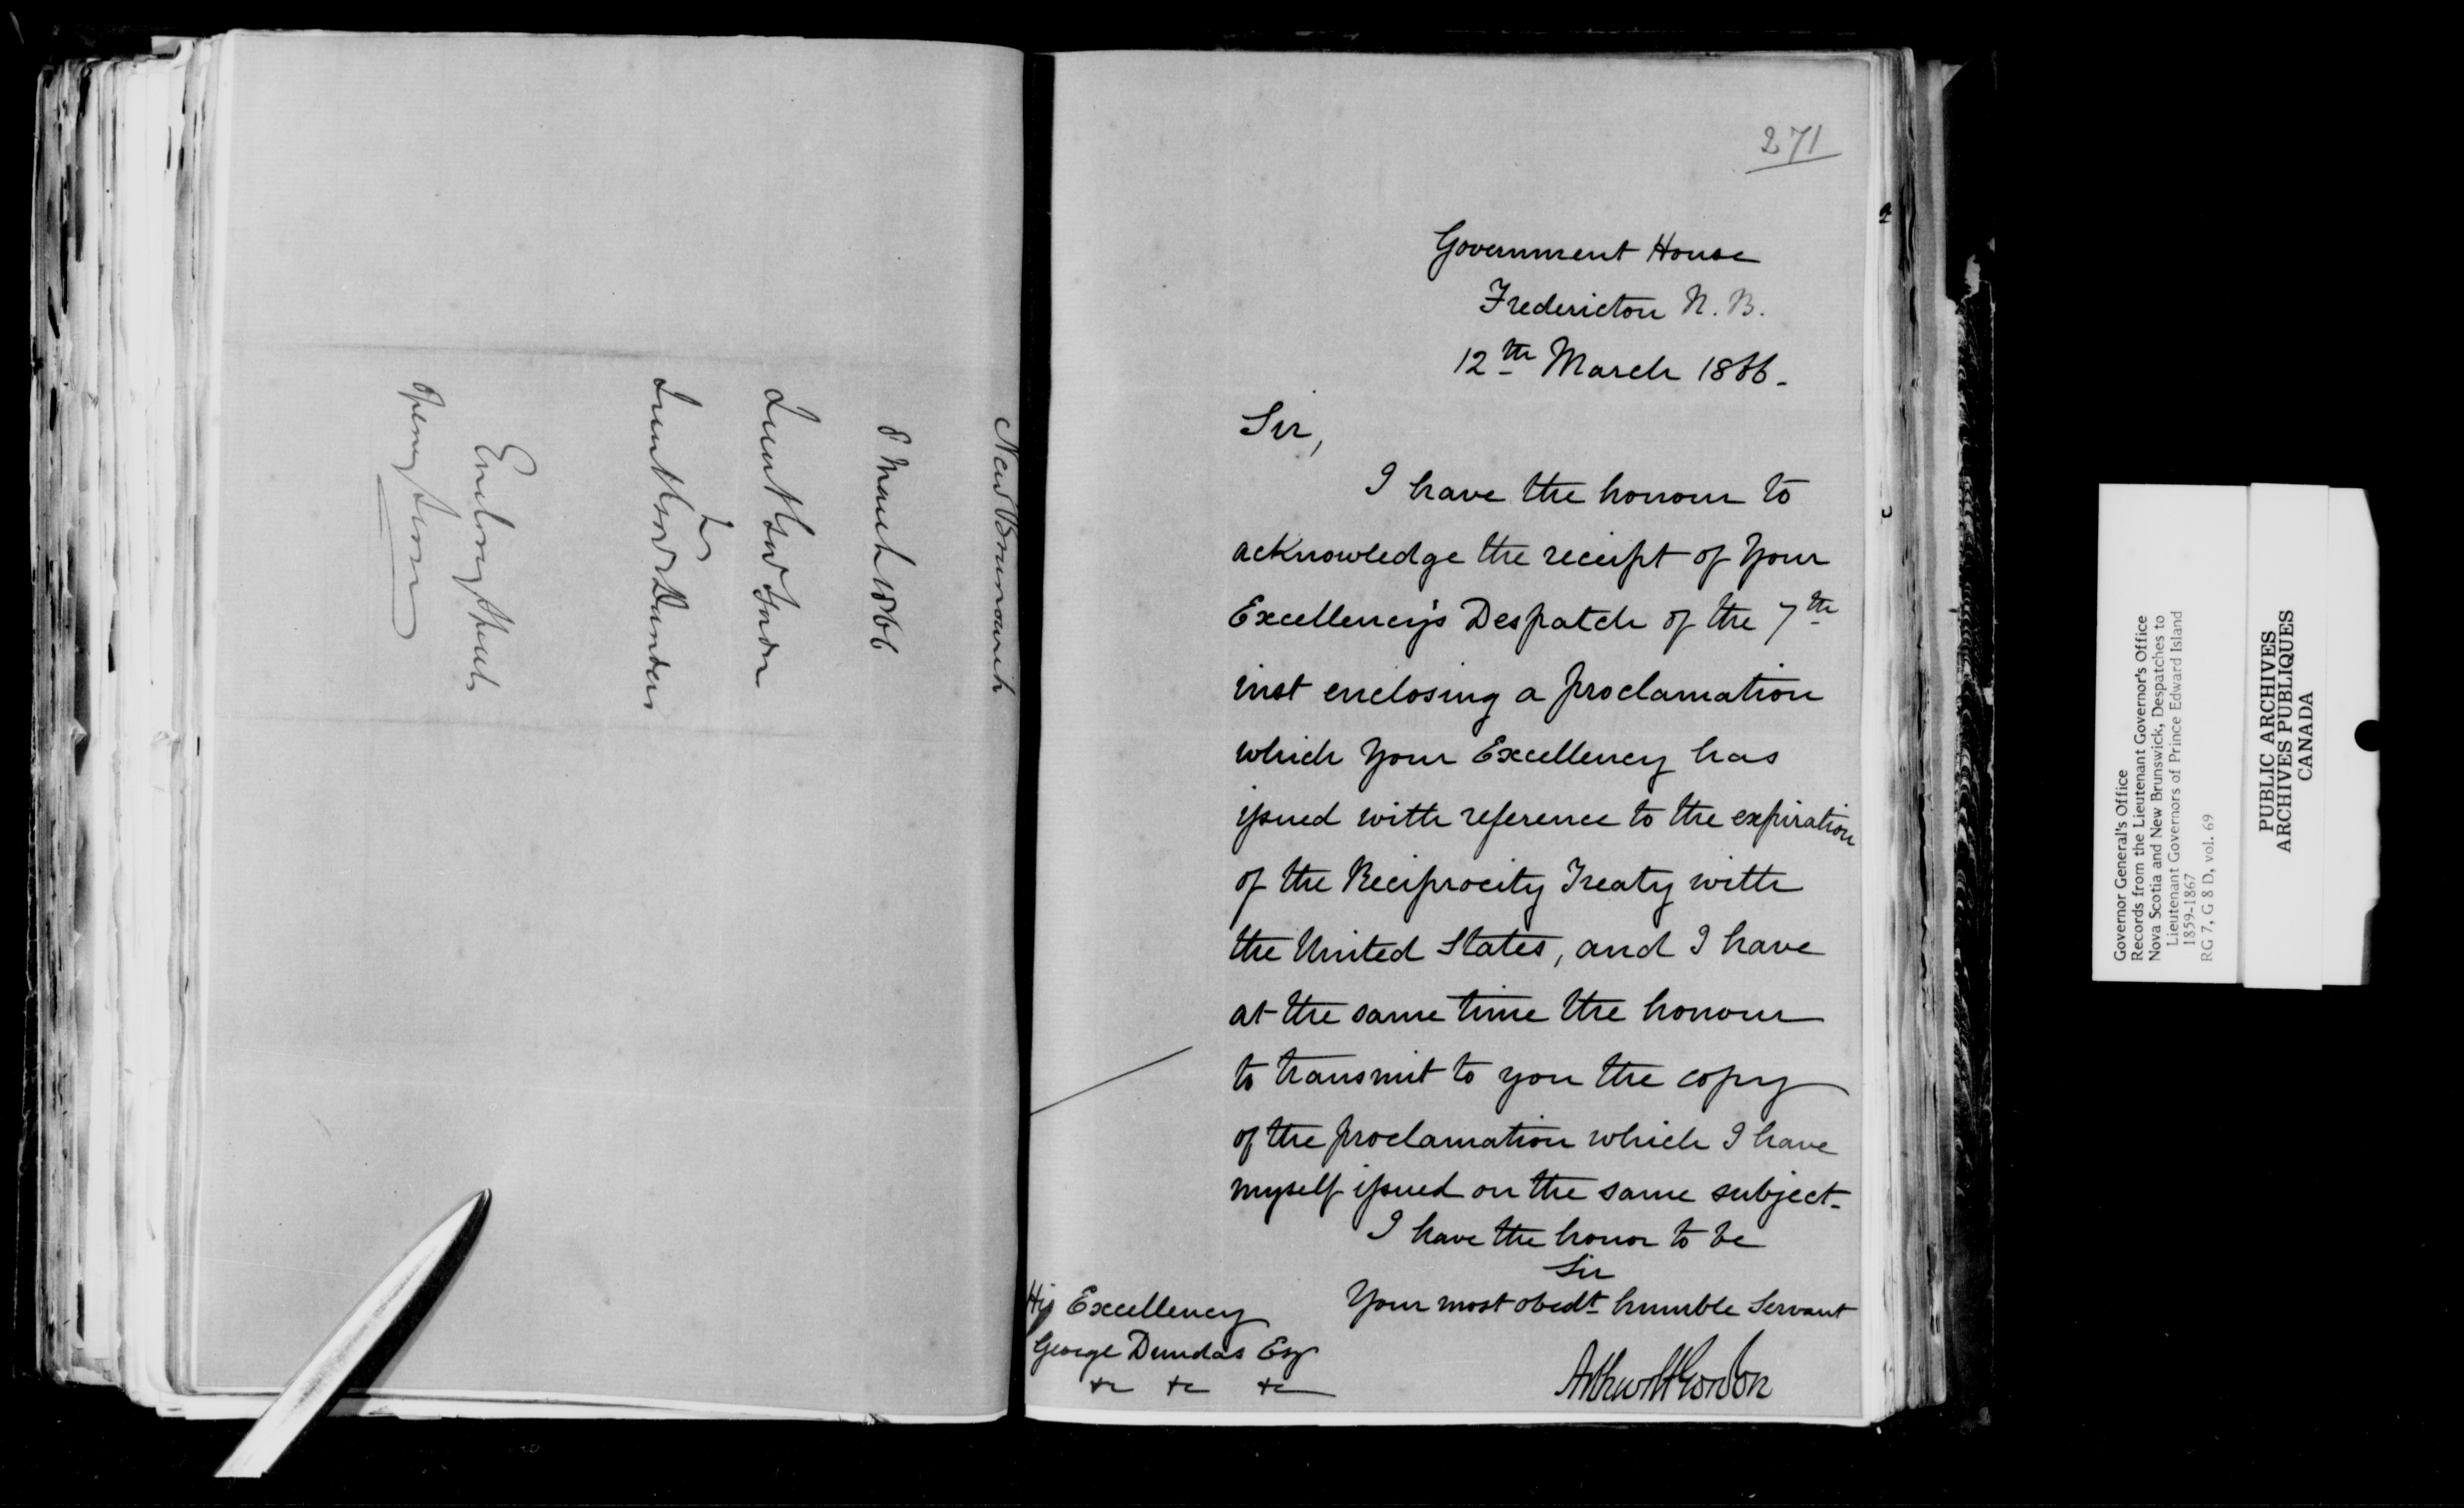 New Brunswick
8 March 1866
Lieut Gov Gordon
to
Lieut Gov Dundas
271
Government House
Fredericton N. B.
12th March 1866-
Sir,
I have the honour to
acknowledge the receipt of Your
Excellency's Despatch of the 7th
inst enclosing a proclamation
which Your Excellency has
issued with reference to the expiration
of the Reciprocity Treaty with
the United States, and I have
at the same time the honour
to transmit to you the copy
of the proclamation which I have
myself issued on the same subject-
I have the honor to be
Sir
Your most obedt humble Servant
Arthur H Gordon
His Excellency
George Dundas Esq
&c &c &c
Governor General's Office
Records from the Lieutenant Governor's Office
Nova Scotia and New Brunswick, Despatches to
Lieutenant Governors of Prince Edward Island
1859-1867
RG 7, G 8 D, vol. 69
PUBLIC ARCHIVES
ARCHIVES PUBLIQUES
CANADA